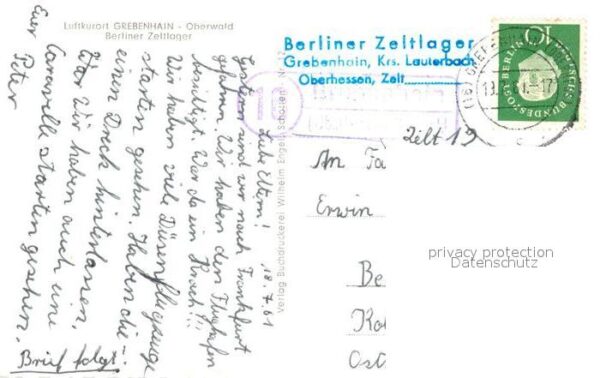 Luftkurort GREBENHAIN - Oberwald
Berliner Zeltlager
18.7.61
Liebe Eltern!
Gestern sind wir nach Frankfurt
gefahren. Wir haben den Flughafen
besichtigt. War da ein Krach!!!
Wir haben viele Düsenflugzeuge
starten gesehen. Haben die
einen Dreck hinterlassen.
Wir haben auch eine
Caravelle starten gesehen.
Euer Peter
Brief folgt!
Verlag Buchdruckerei Wilhelm Engel, Schotten
Berliner Zeltlager
Grebenhain, Krs. Lauterbach
Oberhessen, Zelt
Zelt 19
An Fa
Erwin
Be
Ost
DEUTSCHE BUNDESPOST BERLIN
10
(16) GREBENHAIN
privacy protection
Datenschutz